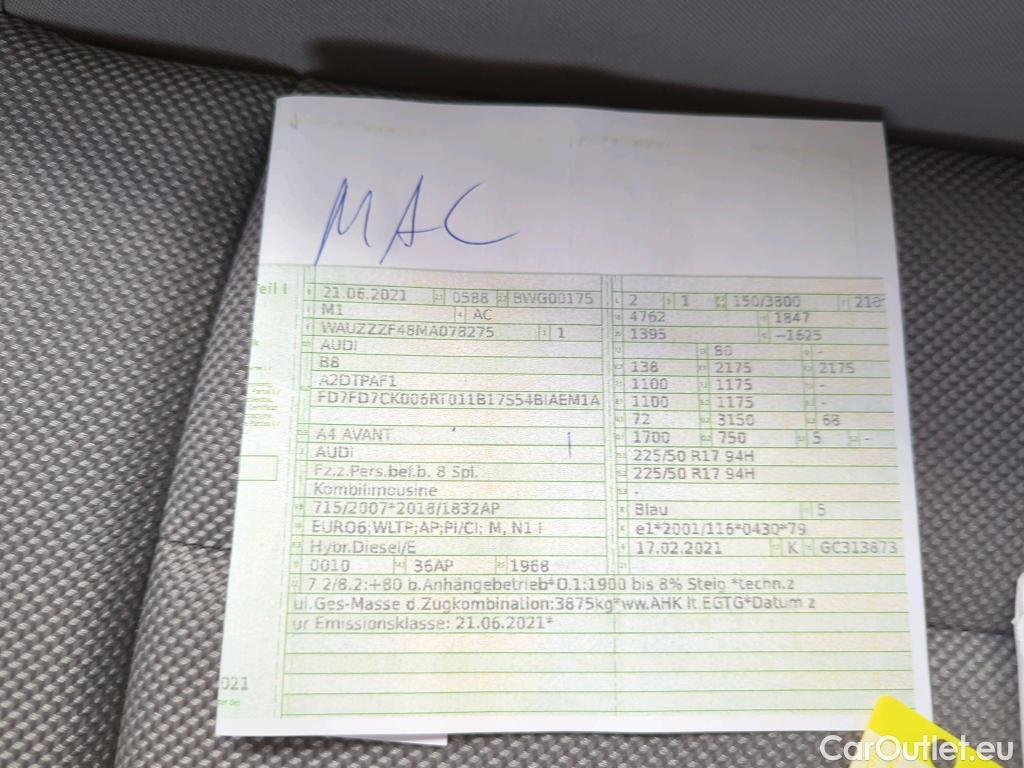 MAC
eil I
21.06.2021 0588 BWG00175
M1 AC
WAUZZZF48MA078275 1
AUDI
B8
A2DTPAF1
FD7FD7CK006RT011B17S54BIAEM1A
A4 AVANT
AUDI
Fz.z.Pers.bef.b. 8 Spl.
Kombilimousine
715/2007*2018/1832AP
EURO6;WLTP;AP;PI/CI; M, N1 I
Hybr.Diesel/E
0010 36AP 1968
2 1 150/3800 218
4762 1847
1395 –1625
80 -
138 2175 2175
1100 1175 -
1100 1175 -
72 3150 68
1700 750 5 -
225/50 R17 94H
225/50 R17 94H
-
Blau 5
e1*2001/116*0430*79
17.02.2021 K GC313873
7.2/8.2:+80 b.Anhängebetrieb*O.1:1900 bis 8% Steig.*techn.z
ul.Ges-Masse d.Zugkombination:3875kg*ww.AHK lt.EGTG*Datum z
ur Emissionsklasse: 21.06.2021*
021
CarOutlet.eu